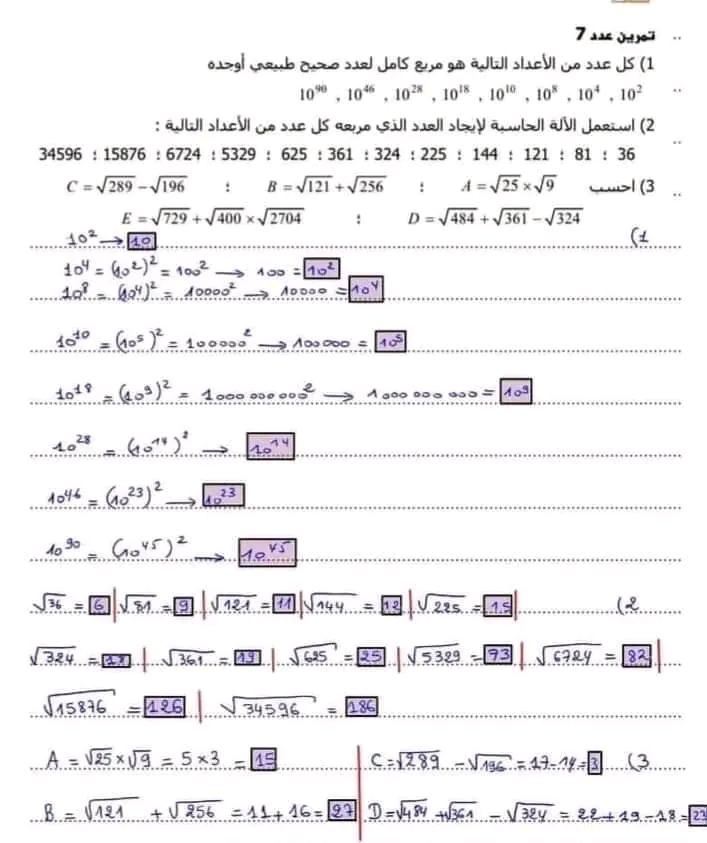 تمرين عدد 7
1) كل عدد من الأعداد التالية هو مربع كامل لعدد صحيح طبيعي أوجده
10⁹⁰ , 10⁴⁶ , 10²⁸ , 10¹⁸ , 10¹⁰ , 10⁸ , 10⁴ , 10²
2) استعمل الآلة الحاسبة لإيجاد العدد الذي مربعه كل عدد من الأعداد التالية :
34596 ; 15876 ; 6724 ; 5329 ; 625 ; 361 ; 324 ; 225 ; 144 ; 121 ; 81 ; 36
3) احسب A = √25 × √9 ; B = √121 + √256 ; C = √289 − √196
D = √484 + √361 − √324 ; E = √729 + √400 × √2704
(1 10² → 10
10⁴ = (10²)² = 100² → 100 = 10²
10⁸ = (10⁴)² = 10000² → 10000 = 10⁴
10¹⁰ = (10⁵)² = 100000² → 100000 = 10⁵
10¹⁸ = (10⁹)² = 1000 000 000² → 1000 000 000 = 10⁹
10²⁸ = (10¹⁴)² → 10¹⁴
10⁴⁶ = (10²³)² → 10²³
10⁹⁰ = (10⁴⁵)² → 10⁴⁵
√36 = 6 | √81 = 9 | √121 = 11 | √144 = 12 | √225 = 15 | (2
√324 = 18 | √361 = 19 | √625 = 25 | √5329 = 73 | √6724 = 82 |
√15876 = 126 | √34596 = 186
A = √25 × √9 = 5 × 3 = 15 | C = √289 − √196 = 17 − 14 = 3 (3
B = √121 + √256 = 11 + 16 = 27 | D = √484 + √361 − √324 = 22 + 19 − 18 = 23